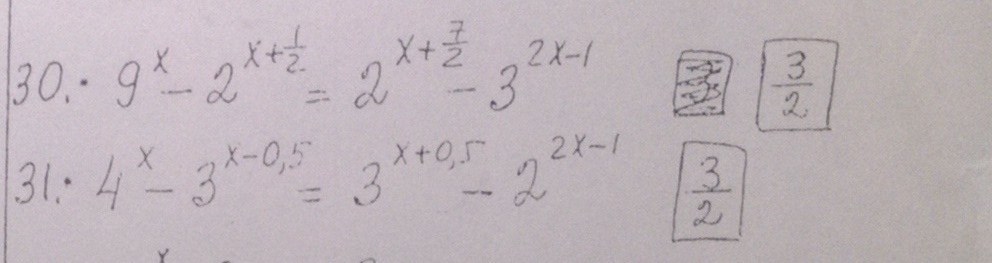 30.• 9^x - 2^{x+\frac{1}{2}} = 2^{x+\frac{7}{2}} - 3^{2x-1} \frac{3}{2}
31.• 4^x - 3^{x-0,5} = 3^{x+0,5} - 2^{2x-1} \frac{3}{2}